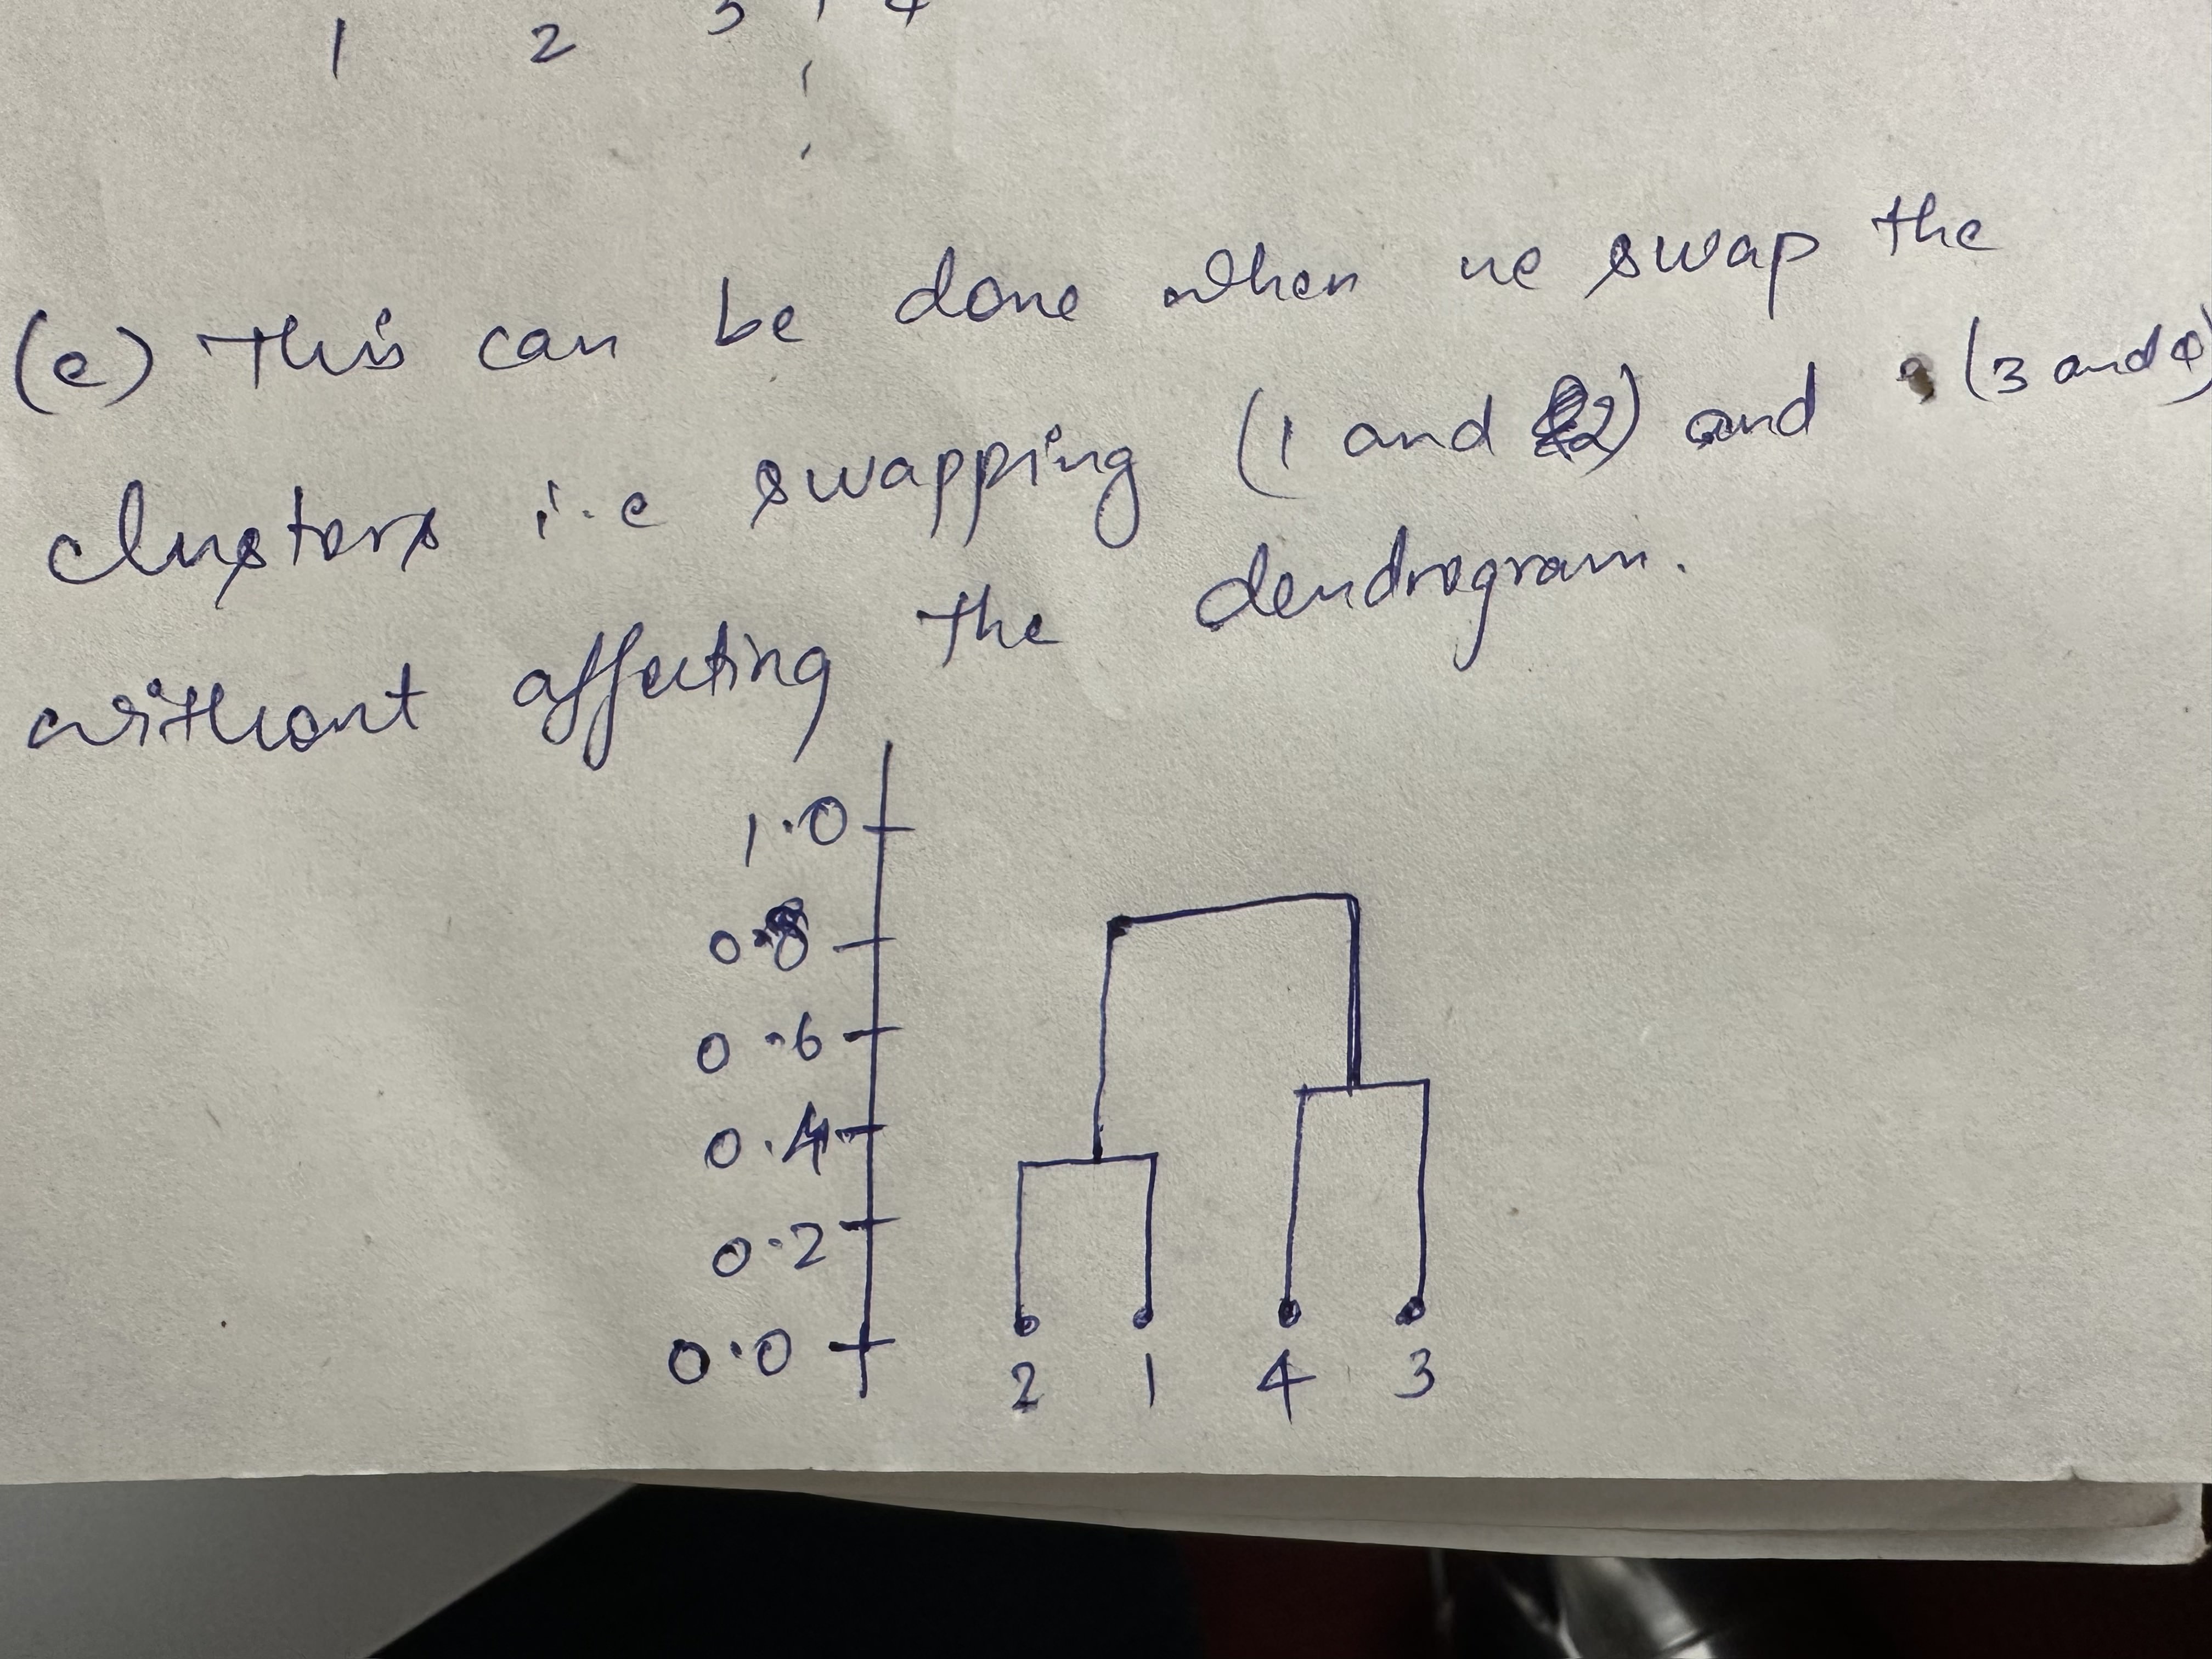 1 2 3 4
(e) This can be done when we swap the
clusters i.e swapping (1 and 2) and (3 and 4)
without affecting the dendrogram.
1.0
0.8
0.6
0.4
0.2
0.0
2 1 4 3